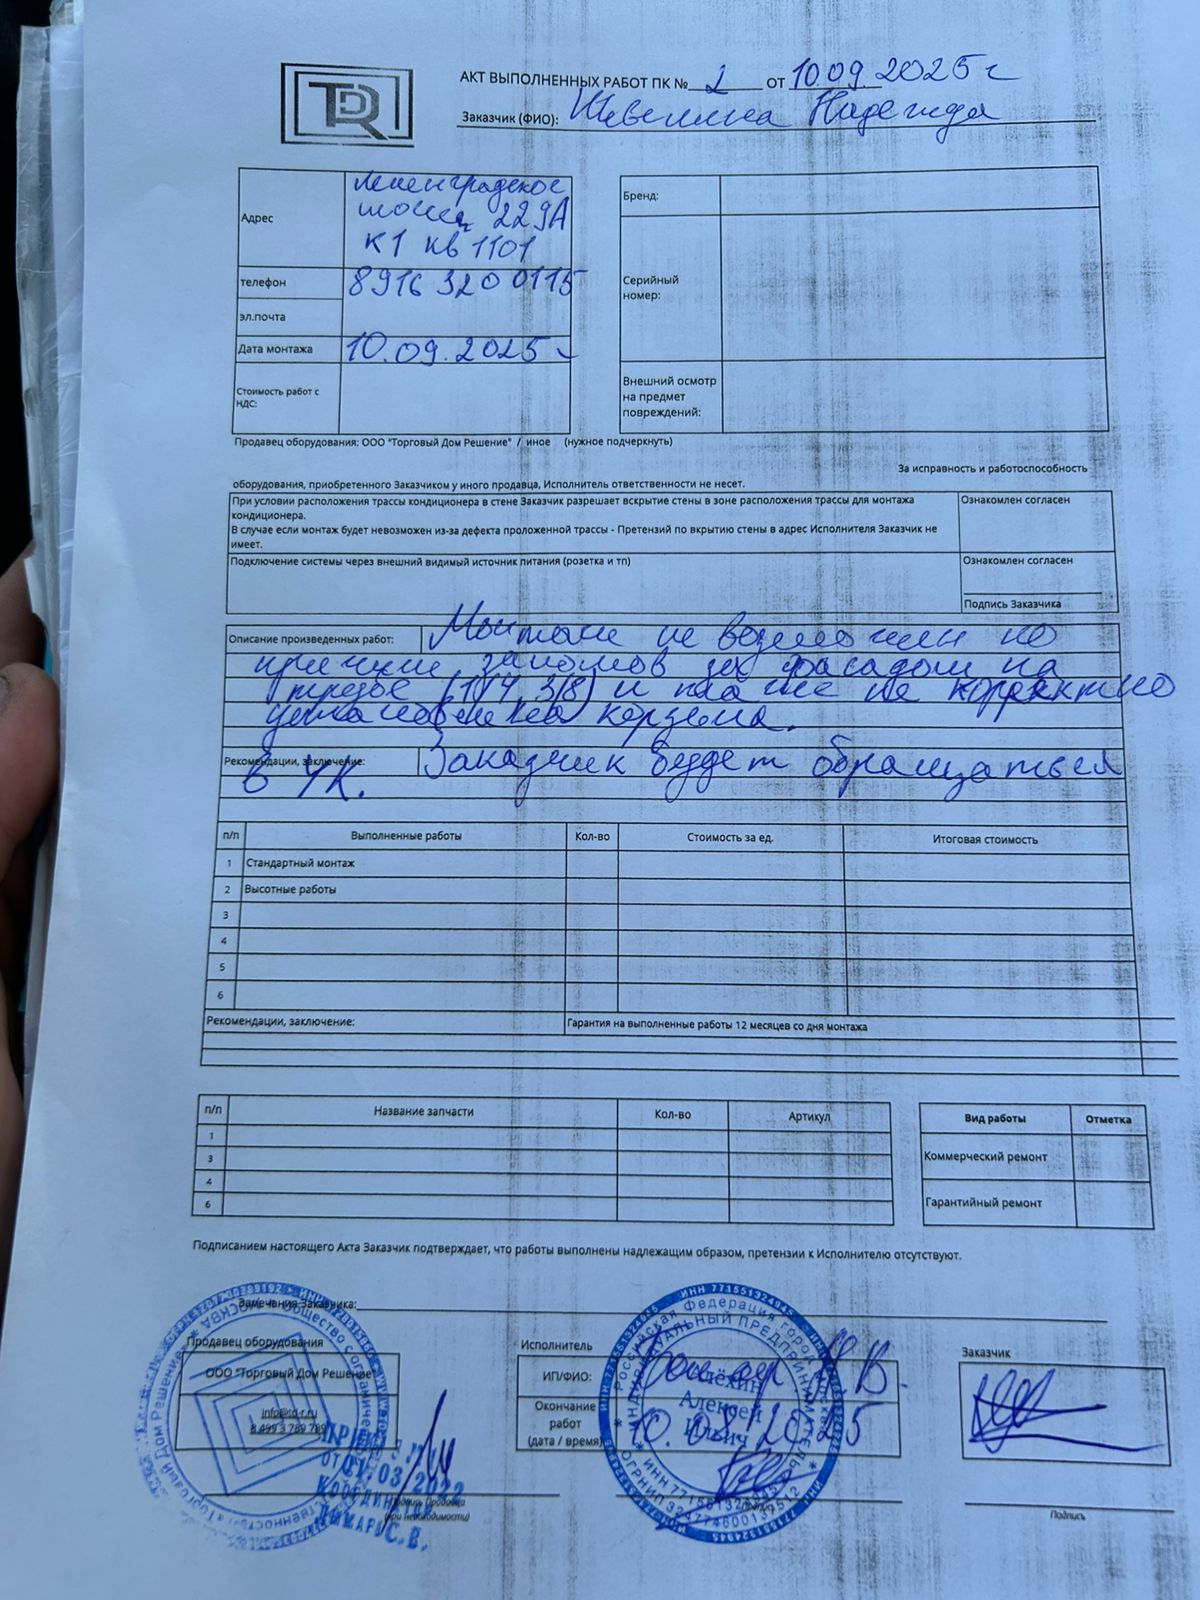 TDR
АКТ ВЫПОЛНЕННЫХ РАБОТ ПК № 2 от 10.09.2025 г
Заказчик (ФИО): Надежда
Адрес
Ленинградское
шоссе 229А
К1 кв 1101
телефон 8916 320 0115
эл.почта
Дата монтажа 10.09.2025 г
Стоимость работ с НДС:
Бренд:
Серийный
номер:
Внешний осмотр
на предмет
повреждений:
Продавец оборудования: ООО "Торговый Дом Решение" / иное (нужное подчеркнуть)
За исправность и работоспособность
оборудования, приобретенного Заказчиком у иного продавца, Исполнитель ответственности не несет.
При условии расположения трассы кондиционера в стене Заказчик разрешает вскрытие стены в зоне расположения трассы для монтажа
кондиционера.
В случае если монтаж будет невозможен из-за дефекта проложенной трассы - Претензий по вкрытию стены в адрес Исполнителя Заказчик не
имеет.
Ознакомлен согласен
Подключение системы через внешний видимый источник питания (розетка и тп)
Ознакомлен согласен
Подпись Заказчика
Описание произведенных работ: Монтаж не возможен по
причине заломов за фасадом на
трубе (1/4 3/8) и так же не корректно
установленна корзина.
Рекомендации, заключение: Заказчик будет обращаться
в УК.
п/п Выполненные работы Кол-во Стоимость за ед. Итоговая стоимость
1 Стандартный монтаж
2 Высотные работы
3
4
5
6
Рекомендации, заключение: Гарантия на выполненные работы 12 месяцев со дня монтажа
п/п Название запчасти Кол-во Артикул
1
3
4
6
Вид работы Отметка
Коммерческий ремонт
Гарантийный ремонт
Подписанием настоящего Акта Заказчик подтверждает, что работы выполнены надлежащим образом, претензии к Исполнителю отсутствуют.
Замечания Заказчика:
Продавец оборудования
ООО "Торговый Дом Решение"
info@td-r.ru
8 499 3 789 789
Подпись Продавца
(при необходимости)
Исполнитель
ИП/ФИО:
Окончание
работ
(дата / время)
Алексей
Ильич
Российская Федерация город Москва
ИНДИВИДУАЛЬНЫЙ ПРЕДПРИНИМАТЕЛЬ
ИНН 771551324945
Подпись
Заказчик
Подпись